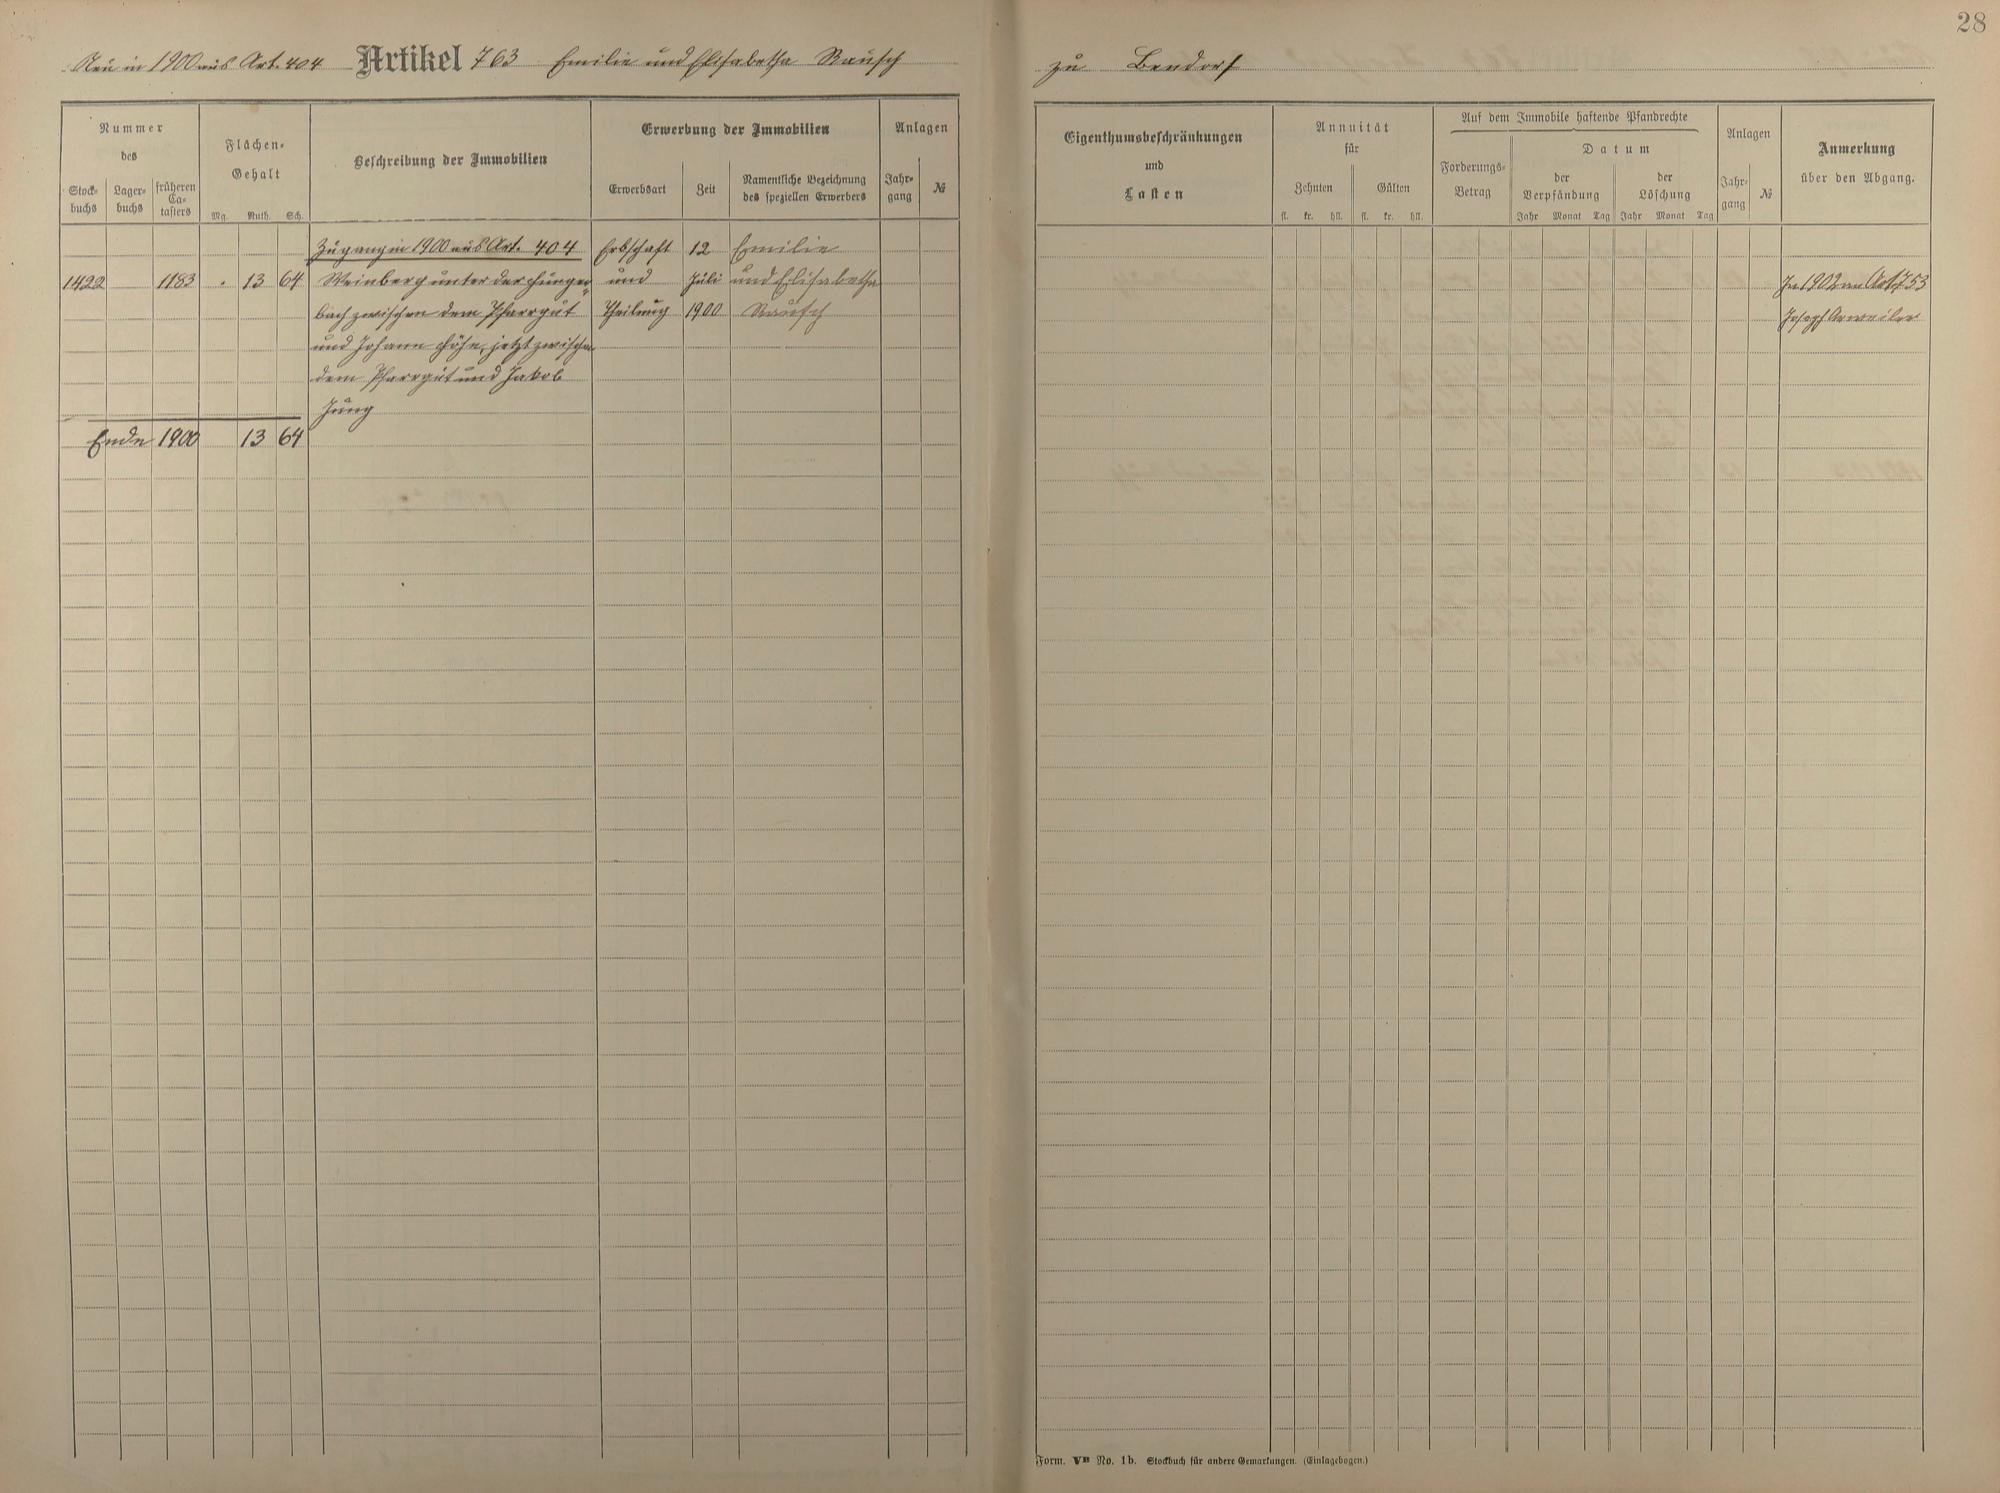 28
Neu in 1900 aus Art. 404 Artikel 763 Emilie und Elisabetha Rausch
zu Bendorf
Nummer
des
Stock-
buchs
Lager-
buchs
früheren
Ca-
tasters
Flächen-
Gehalt
Mg. Ruth. Sch.
Beschreibung der Immobilien
Erwerbung der Immobilien
Erwerbsart
Zeit
Namentliche Bezeichnung
des speziellen Erwerbers
Anlagen
Jahr-
gang
№
Eigenthumsbeschränkungen
und
Lasten
Annuität
für
Zehnten Gülten
fl. kr. hll. fl. kr. hll.
Auf dem Immobile haftende Pfandrechte
Forderungs-
Betrag
Datum
der
Verpfändung
der
Löschung
Jahr Monat Tag Jahr Monat Tag
Anlagen
Jahr-
gang
№
Anmerkung
über den Abgang.
Zugang in 1900 aus Art. 404 Erbschaft 12 Emilie
1422 1183 . 13 64 Weinberg unter der Hunger- und Juli und Elisabetha
bach zwischen dem Pfarrgut Theilung 1900 Rausch
und Johann Höhn, jetzt zwischen
dem Pfarrgut und Jakob
Jung
Ende 1900 13 64
In 1902 an Art. 753
Joseph Arweiler
Form. VB No. 1b. Stockbuch für andere Gemarkungen. (Einlagebogen.)